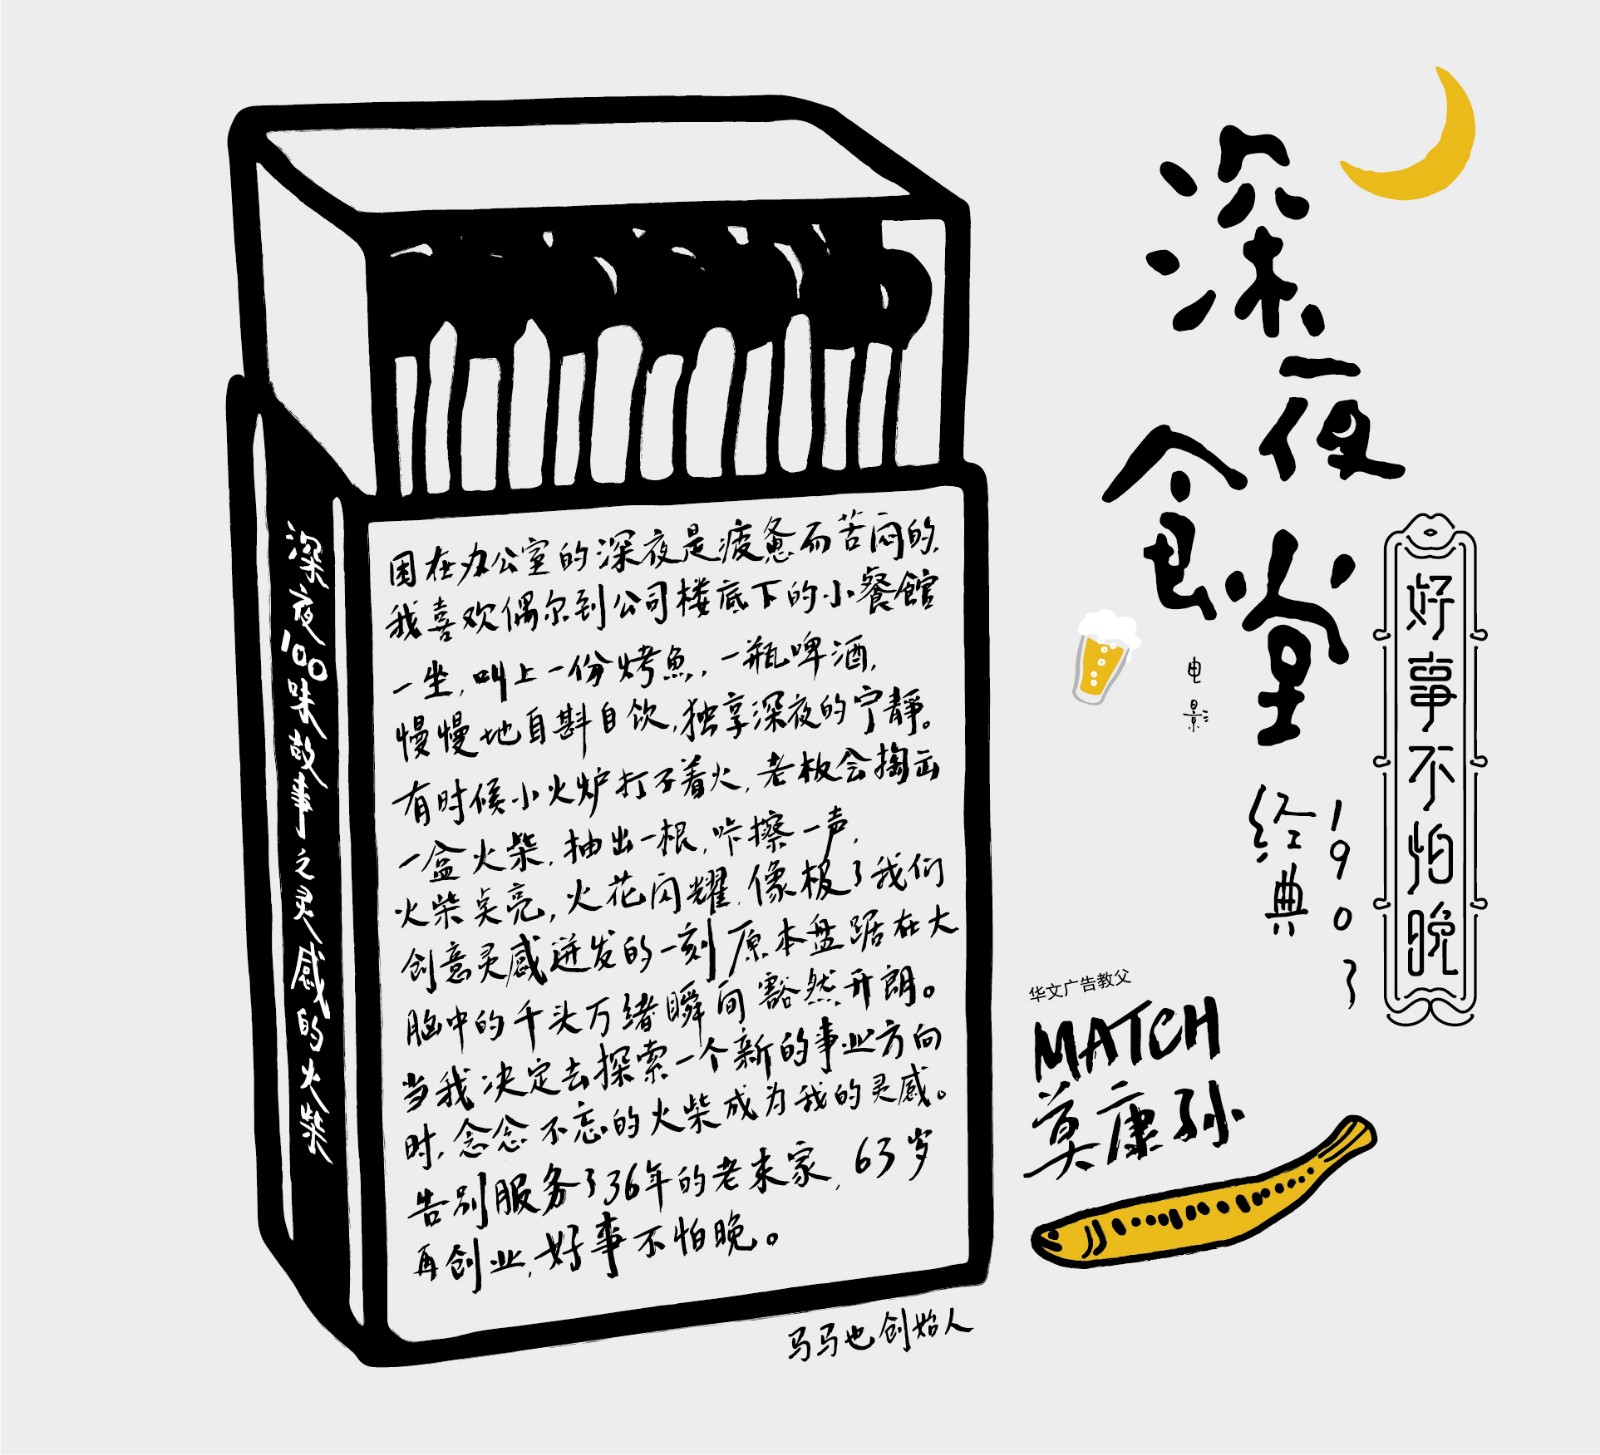 深夜食堂
电影
经典
1903
好事不怕晚
华文广告教父
MATCH
莫康孙
深夜100味故事之灵感的火柴
困在办公室的深夜是疲惫而苦闷的.
我喜欢偶尔到公司楼底下的小餐館
一坐,叫上一份烤魚,一瓶啤酒,
慢慢地自斟自饮,独享深夜的宁靜。
有时候小火炉打不着火,老板会掏出
一盒火柴,抽出一根,咔擦一声,
火柴点亮,火花闪耀,像极了我们
创意灵感迸发的一刻原本盘踞在大
脑中的千头万绪瞬间豁然开朗。
当我决定去探索一个新的事业方向
时,念念不忘的火柴成为我的灵感。
告别服务了36年的老东家,63岁
再创业,好事不怕晚。
马马也创始人